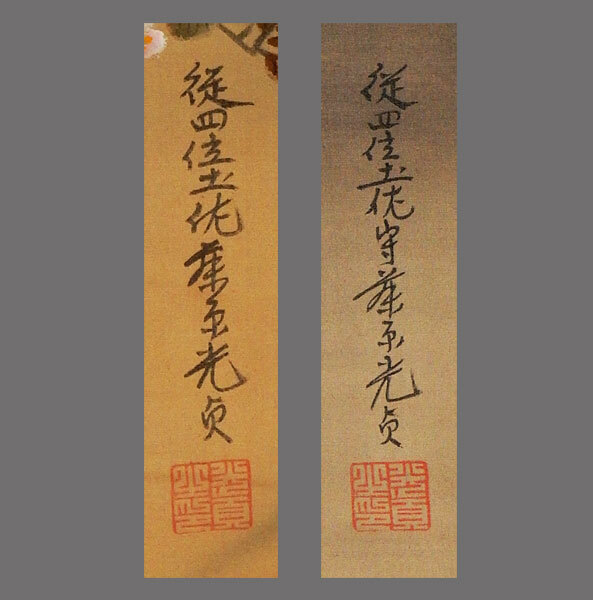 從四位土佐藤原光貞
從四位土佐守藤原光貞